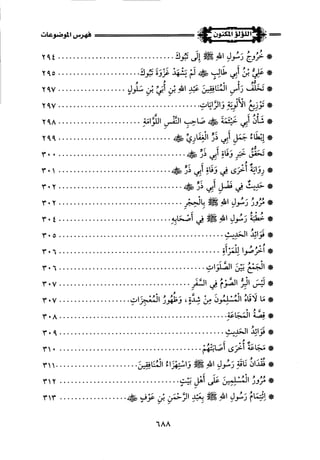 اللؤلؤ المكنون
فهرس الموضوعات
* خُرُوجُ رَسُولِ اللهِ ﷺ إِلَى تَبُوكَ ٢٩٤
* عَلِيُّ بْنُ أَبِي طَالِبٍ ﷺ لَمْ يَشْهَدْ غَزْوَةَ تَبُوكَ ٢٩٥
* تَخَلُّفُ رَأْسِ الْمُنَافِقِينَ عَبْدِ اللهِ بْنِ أُبَيِّ بْنِ سَلُولٍ ٢٩٧
* تَوْزِيعُ الْأَلْوِيَةِ وَالرَّايَاتِ ٢٩٧
* شَأْنُ أَبِي خَيْثَمَةَ ﷺ صَاحِبِ النَّفْسِ اللَّوَّامَةِ ٢٩٨
* إِبْطَاءُ جَمَلِ أَبِي ذَرٍّ الْغِفَارِيِّ ﷺ ٢٩٩
* تَحَقُّقُ خَبَرِ وَفَاةِ أَبِي ذَرٍّ ﷺ ٣٠٠
* رِوَايَةٌ أُخْرَى فِي وَفَاةِ أَبِي ذَرٍّ ﷺ ٣٠١
* حَدِيثٌ فِي فَضْلِ أَبِي ذَرٍّ ﷺ ٣٠٢
* مُرُورُ رَسُولِ اللهِ ﷺ بِالْحِجْرِ ٣٠٢
* خُطْبَةُ رَسُولِ اللهِ ﷺ فِي أَصْحَابِهِ ٣٠٤
* فَوَائِدُ الْحَدِيثِ ٣٠٥
* اُخْرُصُوا لِلْمَرْأَةِ ٣٠٦
* الْجَمْعُ بَيْنَ الصَّلَوَاتِ ٣٠٦
* لَيْسَ الْبِرُّ الصَّوْمُ فِي السَّفَرِ ٣٠٧
* مَا لَاقَاهُ الْمُسْلِمُونَ مِنْ شِدَّةٍ، وَظُهُورُ الْمُعْجِزَاتِ ٣٠٧
* قِصَّةُ الْمَجَاعَةِ ٣٠٨
* فَوَائِدُ الْحَدِيثِ ٣٠٩
* مَجَاعَةٌ أُخْرَى أَصَابَتْهُمْ ٣١٠
* فُقْدَانُ نَاقَةِ رَسُولِ اللهِ ﷺ وَاسْتِهْزَاءُ الْمُنَافِقِينَ ٣١١
* مُرُورُ الْمُسْلِمِينَ عَلَى أَهْلِ بَيْتٍ ٣١٢
* ائْتِمَامُ رَسُولِ اللهِ ﷺ بِعَبْدِ الرَّحْمَنِ بْنِ عَوْفٍ ﷺ ٣١٣
٦٨٨